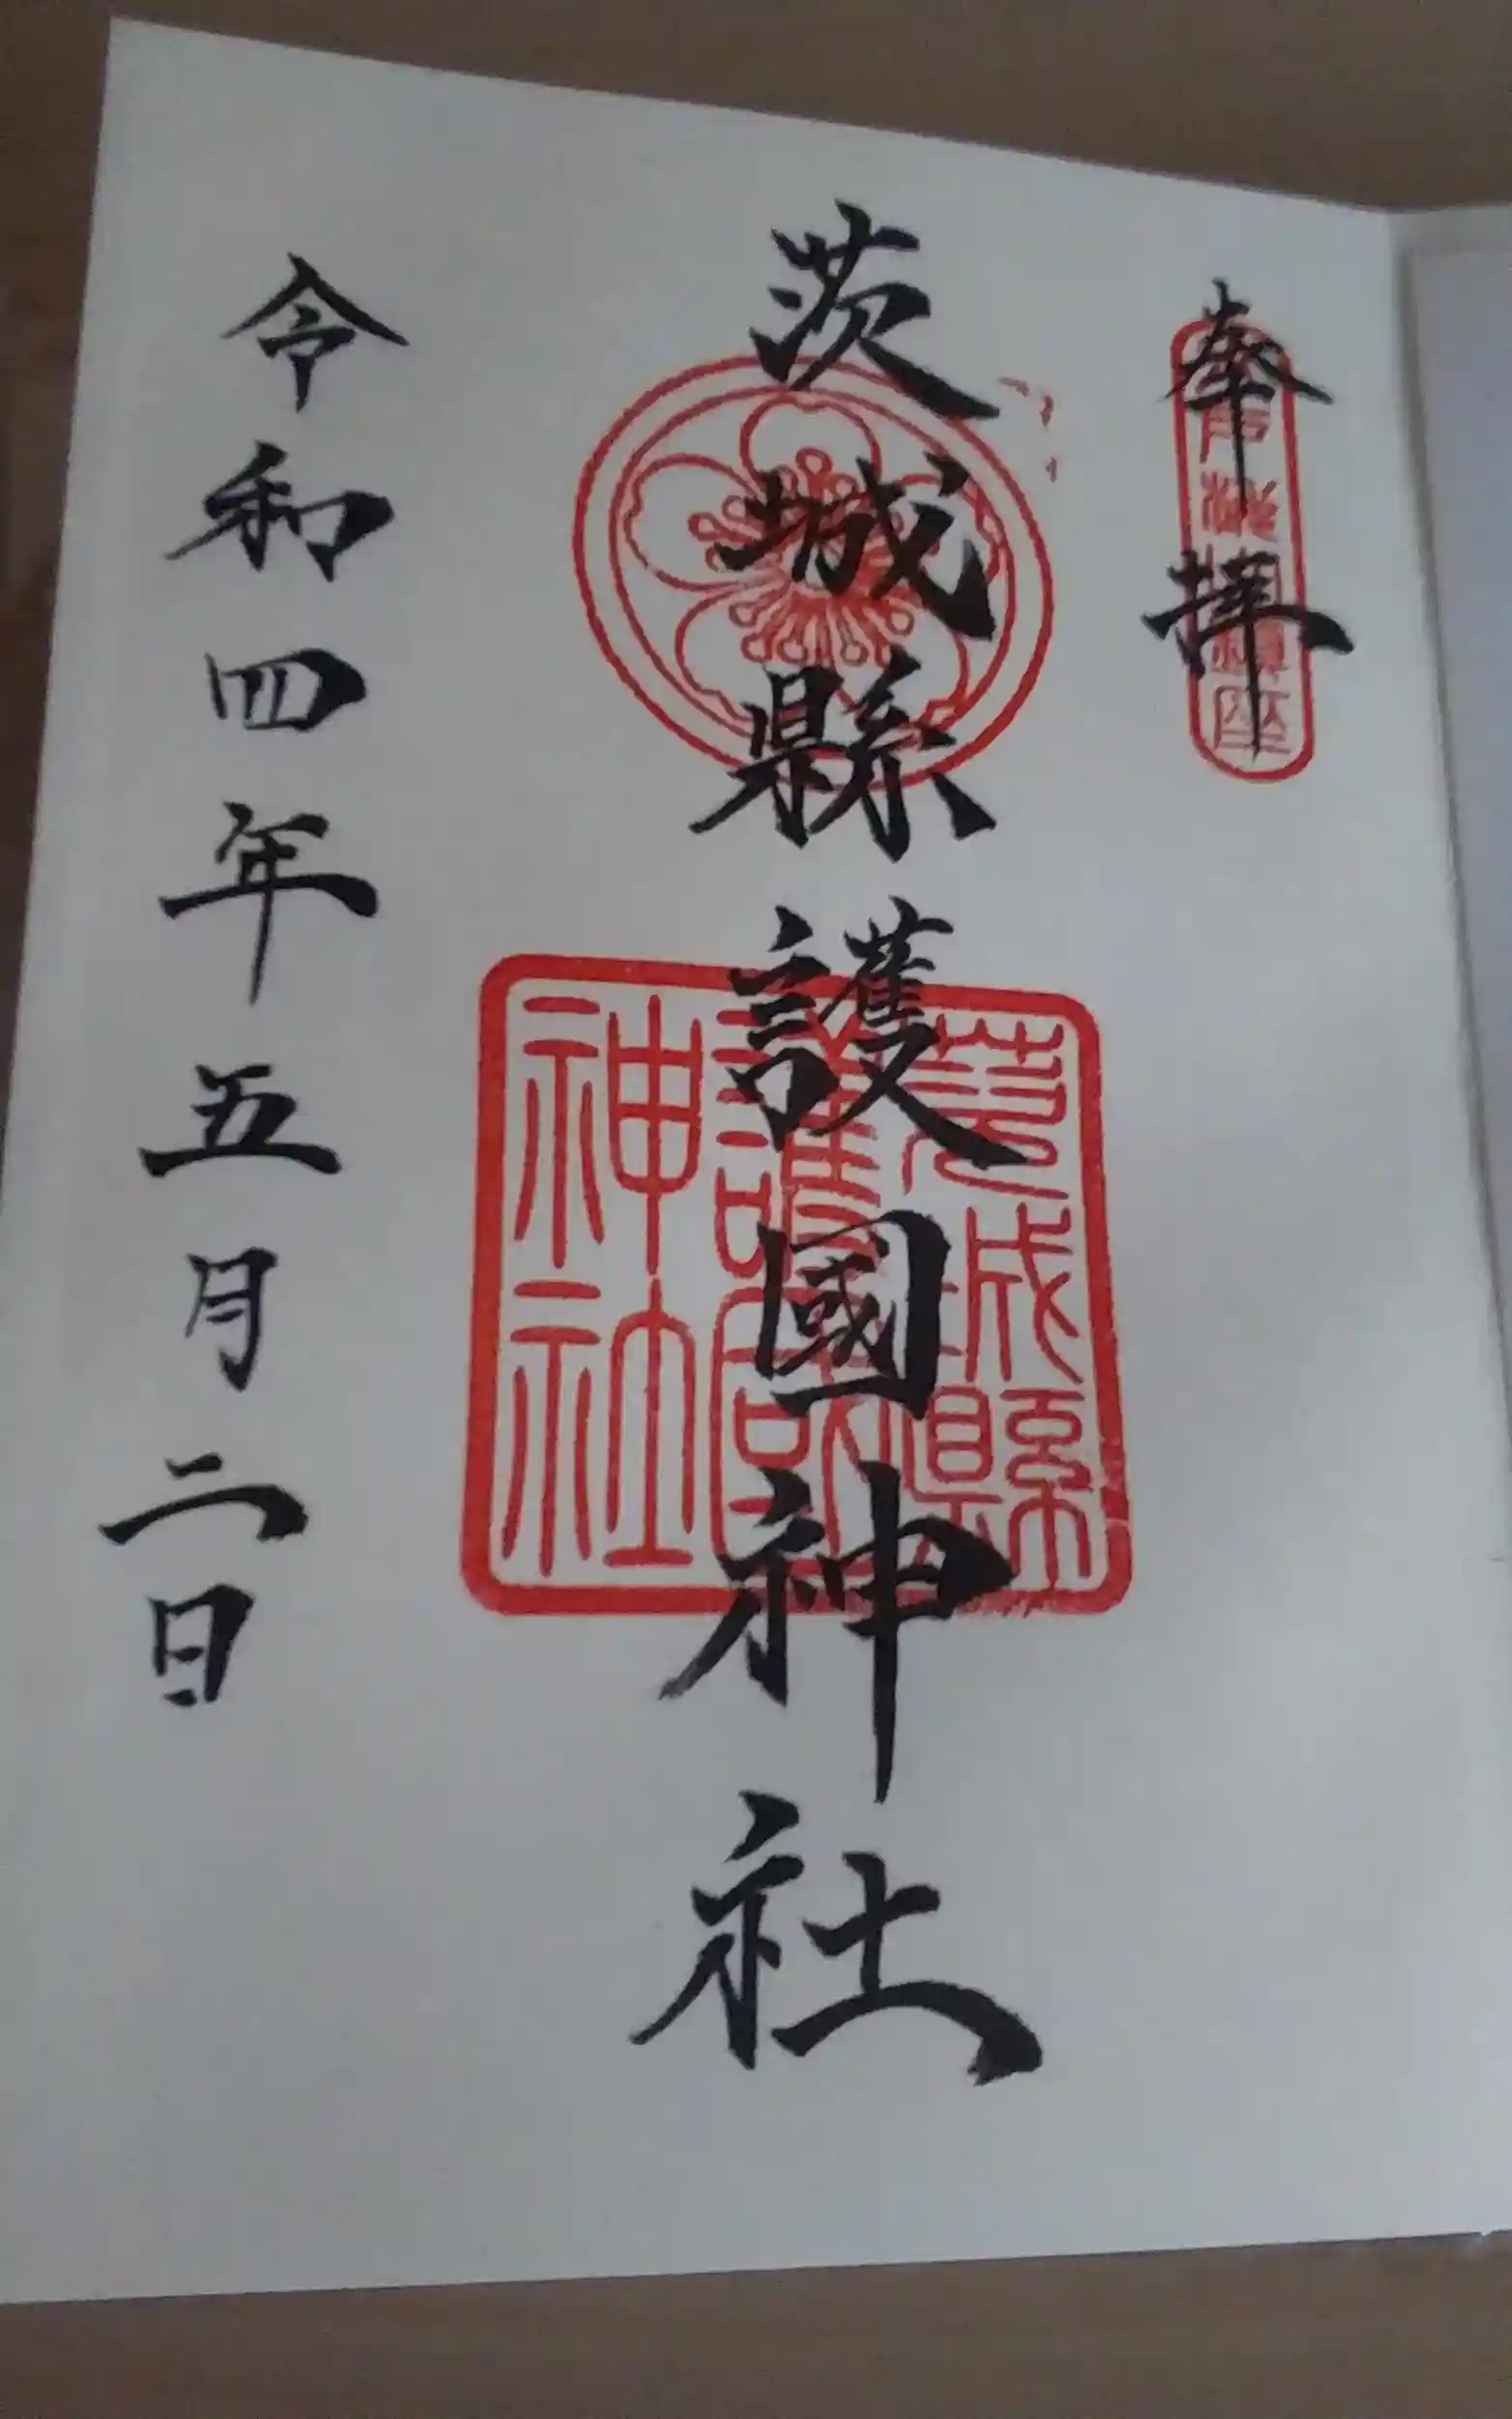 奉拝
茨城縣護國神社
茨城縣
護國
神社
令和四年五月二日